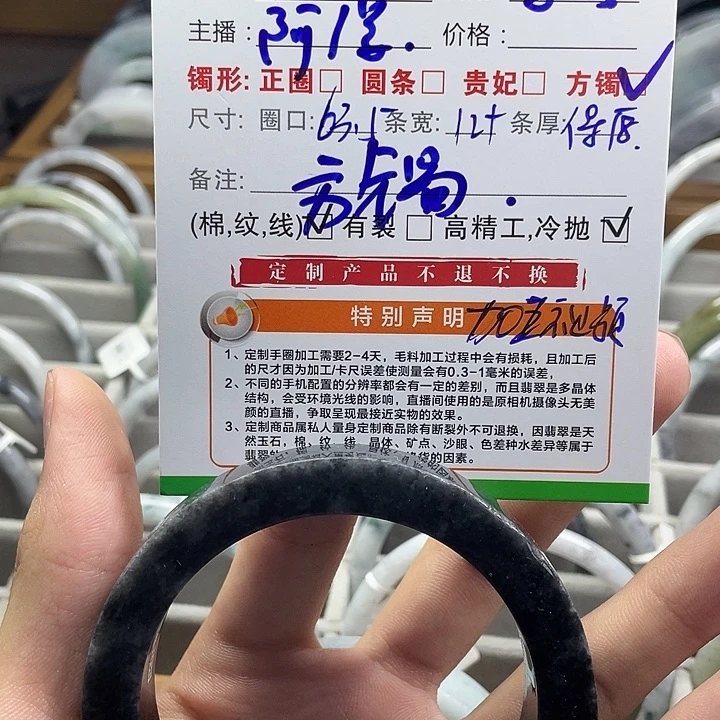 主播: 阿保. 价格:
镯形: 正圈□ 圆条□ 贵妃□ 方镯☑
尺寸: 圈口: 63.5 条宽: 12+ 条厚: 保厚.
备注:
(棉,纹,线)☑有裂□高精工,冷抛☑
定制产品不退不换
特别声明
1、定制手圈加工需要2-4天,毛料加工过程中会有损耗,且加工后
的尺寸因为加工/卡尺误差使测量会有0.3-1毫米的误差,
2、不同的手机配置的分辨率都会有一定的差别,而且翡翠是多晶体
结构,会受环境光线的影响,直播间使用的是原相机摄像头无美
颜的直播,争取呈现最接近实物的效果。
3、定制商品属私人量身定制商品除有断裂外不可退换,因翡翠是天
然玉石,棉、纹、线、晶体、矿点、沙眼、色差种水差异等属于